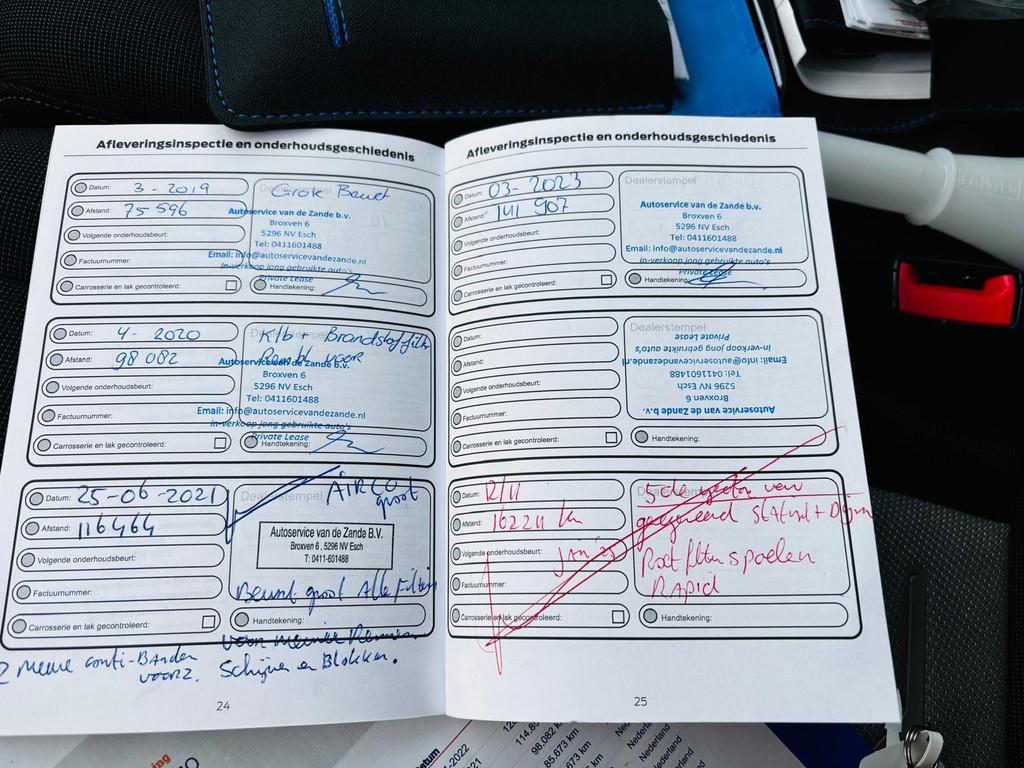 Afleveringsinspectie en onderhoudsgeschiedenis
Datum: 3-2019
Afstand: 75 596
Volgende onderhoudsbeurt:
Factuurnummer:
Carrosserie en lak gecontroleerd:
Grote Beurt
Autoservice van de Zande b.v.
Broxven 6
5296 NV Esch
Tel: 0411601488
Email: info@autoservicevandezande.nl
in-verkoop jong gebruikte auto's
Private Lease
Handtekening:
Datum: 4-2020
Afstand: 98 082
Volgende onderhoudsbeurt:
Factuurnummer:
Carrosserie en lak gecontroleerd:
Klb + Brandstoffiltr
Autoservice van de Zande b.v.
Broxven 6
5296 NV Esch
Tel: 0411601488
Email: info@autoservicevandezande.nl
in-verkoop jong gebruikte auto's
Private Lease
Handtekening:
Datum: 25-06-2021
Afstand: 116464
Volgende onderhoudsbeurt:
Factuurnummer:
Carrosserie en lak gecontroleerd:
Dealerstempel
AIRCO
groot
Autoservice van de Zande B.V.
Broxven 6, 5296 NV Esch
T: 0411-601488
Beurt groot Alle Filters
Handtekening:
voor nieuwe Remmen
Schijven en Blokken.
2 nieuwe conti-Banden
voorz.
24
Afleveringsinspectie en onderhoudsgeschiedenis
Datum: 03-2023
Afstand: 141 907
Volgende onderhoudsbeurt:
Factuurnummer:
Carrosserie en lak gecontroleerd:
Dealerstempel
Autoservice van de Zande b.v.
Broxven 6
5296 NV Esch
Tel: 0411601488
Email: info@autoservicevandezande.nl
in-verkoop jong gebruikte auto's
Private Lease
Handtekening:
Datum:
Afstand:
Volgende onderhoudsbeurt:
Factuurnummer:
Carrosserie en lak gecontroleerd:
Dealerstempel
Autoservice van de Zande b.v.
Broxven 6
5296 NV Esch
Tel: 0411601488
Email: info@autoservicevandezande.nl
in-verkoop jong gebruikte auto's
Private Lease
Handtekening:
Datum: 12/11
Afstand: 162211 km
Volgende onderhoudsbeurt:
Factuurnummer:
Carrosserie en lak gecontroleerd:
5 de
Roetfilter spoelen
RAPID
Handtekening:
25
98.082 km
85.673 km
Nederland
Nederland
Nederland